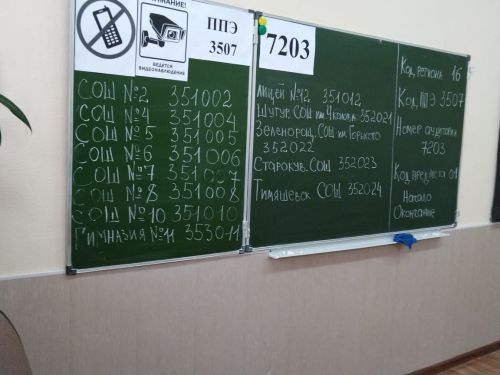 ВНИМАНИЕ!
ВЕДЕТСЯ
ВИДЕОНАБЛЮДЕНИЕ
ППЭ
3507
СОШ №2 351002
СОШ №4 351004
СОШ №5 351005
СОШ №6 351006
СОШ №7 351007
СОШ №8 351008
СОШ №10 351010
Гимназия №11 353011
7203
Лицей №12 351012
Шугур. СОШ им. 352021
Зеленорощ. СОШ им. Горького
352022
Старокув. СОШ 352023
Тимяшевск СОШ 352024
Код региона 16
Код ППЭ 3507
Номер аудитории
7203
Код предмета 01
Начало
Окончание